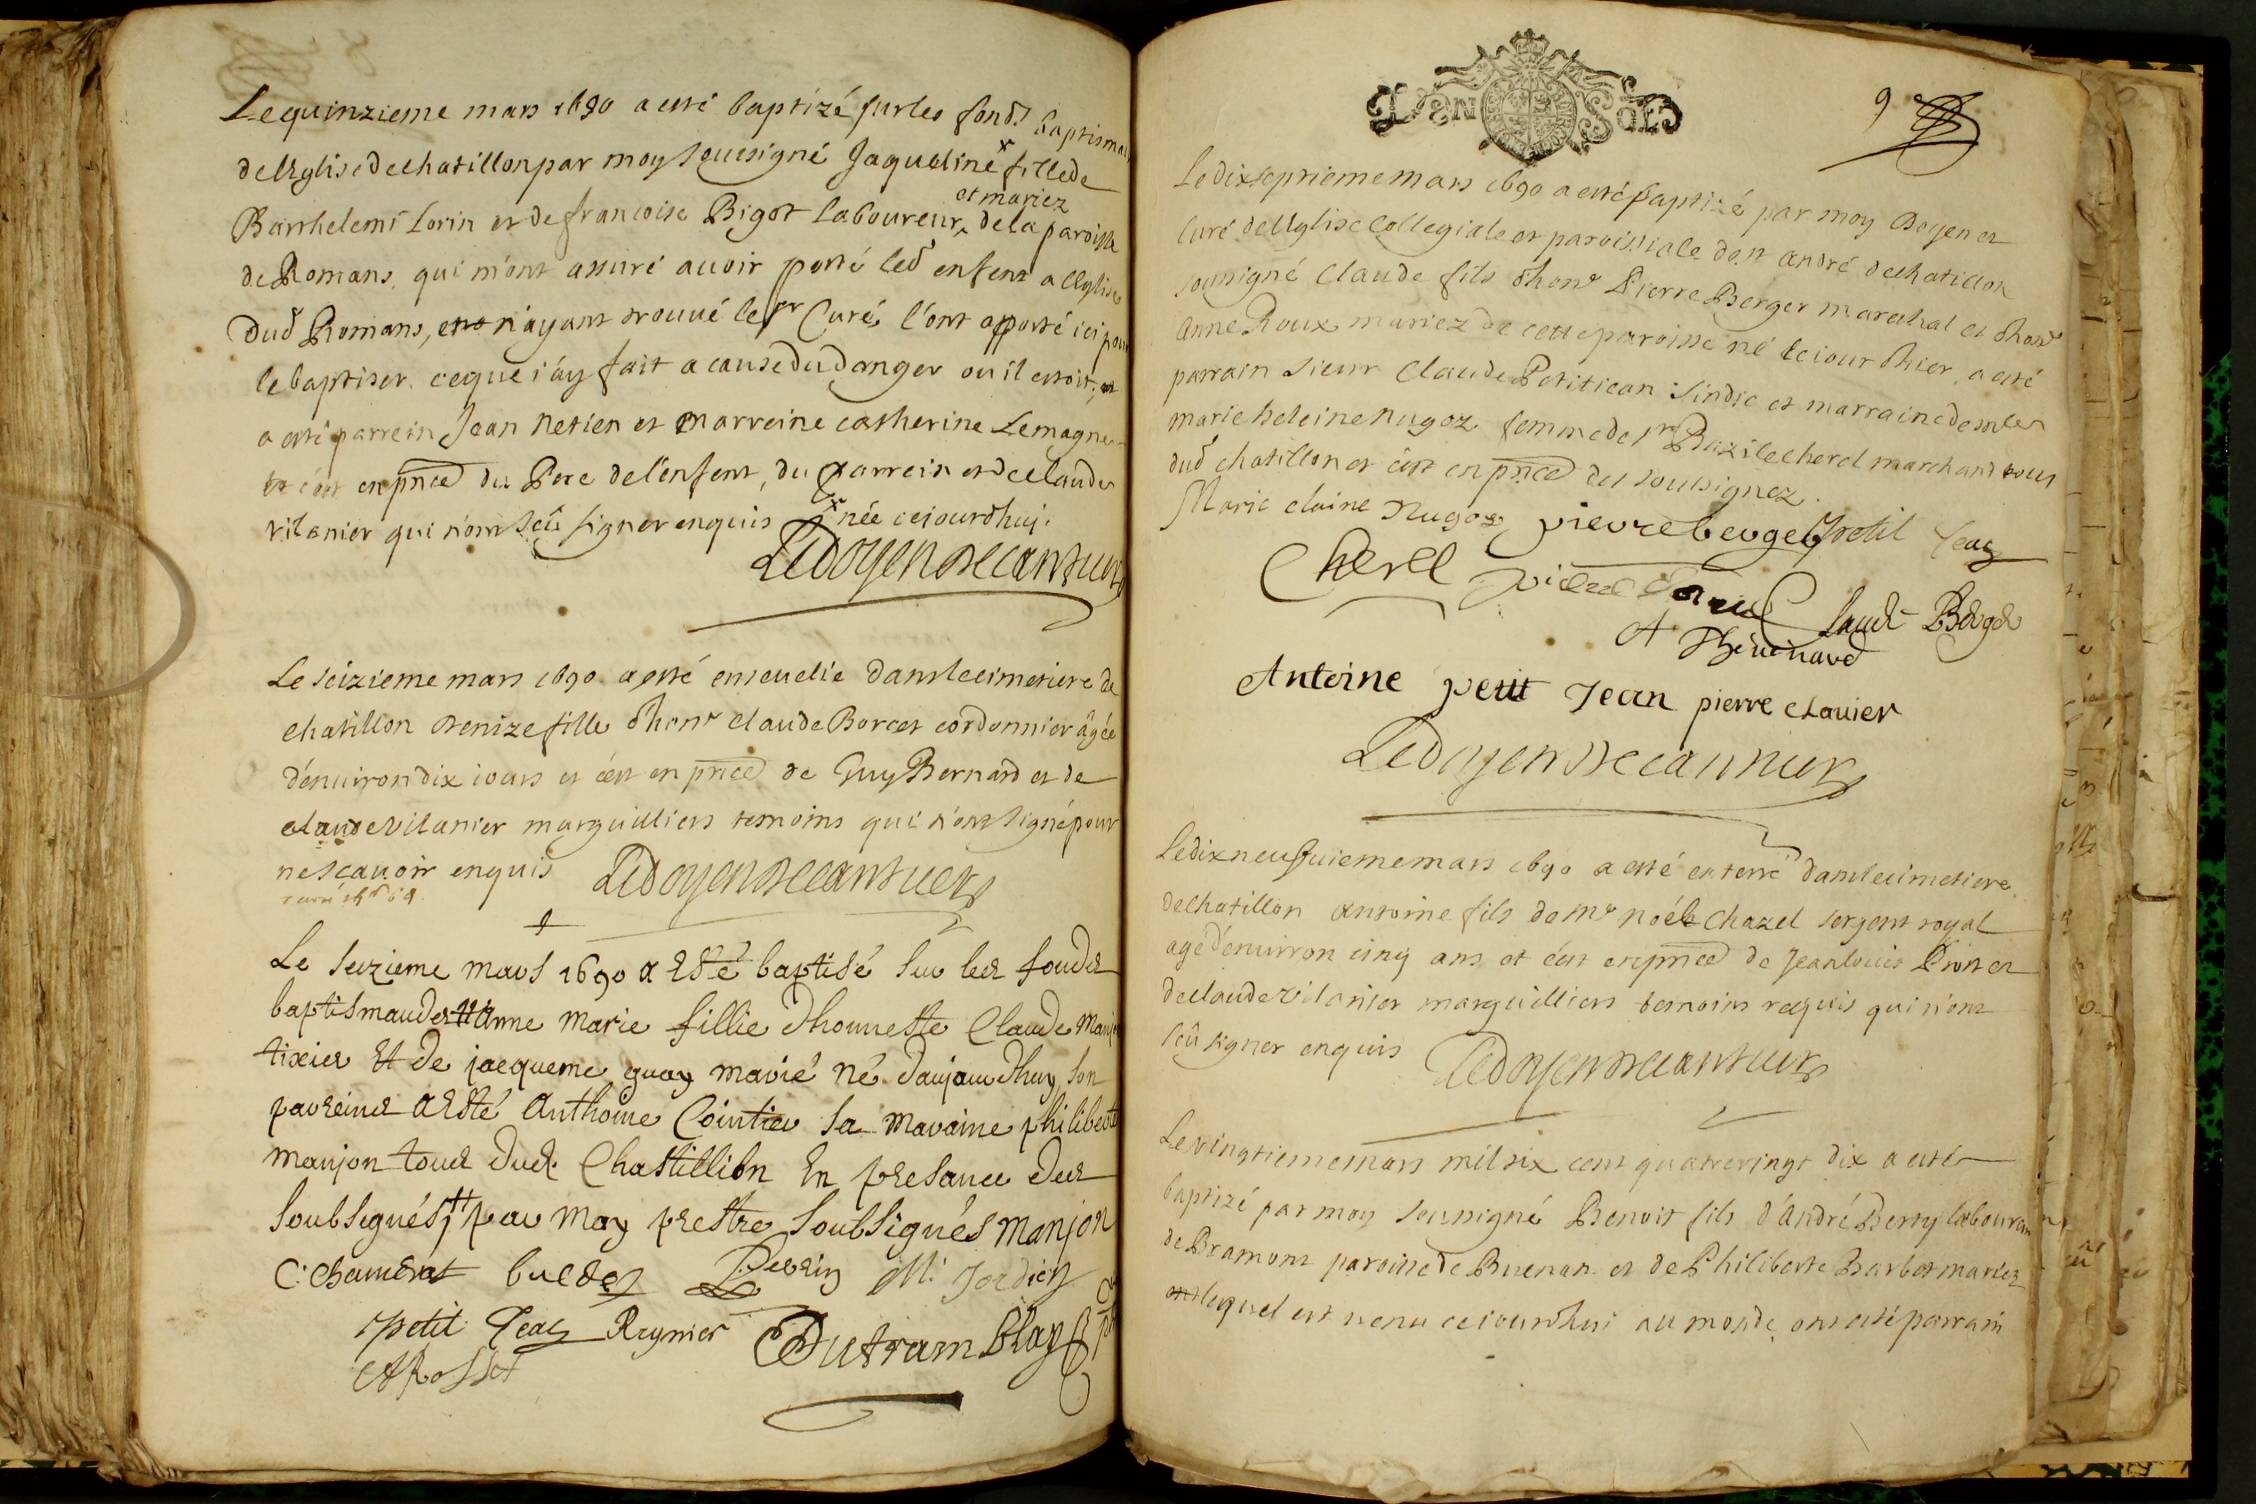 Le quinzieme mars 1690 a esté baptizé sur les fonds baptismau
de l'Eglise de chatillon par moy sousigné Jaqueline x fille de
et mariez
Barthelemi Lorin et de francoise Bigot laboureur ^ de la paroisse
de Romans, qui m'ont assuré avoir porté led enfent a l'Eglise
dud Romans, n'ayant trouvé le sr Curé, l'ont apporté ici pour
le baptiser. ce que i'ay fait a cause du danger ou il estoit, et
a esté parrein Jean Netien et marreine catherine Lemagne
et c'est en pnce du Pere de l'enfent, du parrein et de claude
vilanier qui n'ont sçû signer enquis x née ce iourdhuj.
Le doyen decanteur
Le seizieme mars 1690 a esté ensevelie dans le cimetiere de
chatillon denize fille d'honr claude Borcet cordonnier âgée
d'environ dix iours et c'est en pnce de Guy Bernard et de
claude vilanier marguilliers temoins qui n'ont signé pour
ne scavoir enquis Le doyen decanteur
Le seizieme mars 1690 a Esté baptisé sur les fondes
baptismaudes †† Anne marie fillie dhonneste Claude manjon
tixier Et de jacqueme guoy marié né daujourdhuy, son
parreines a Esté Anthoine Cointier sa maraine philiberte
manjon tous dud. Chastillion En presance des
soubsignés, †† par moy prestre soubsignés manjon
C: Chamerat buldes Perrin M: Jordien
petit Jean Reynier Dutram blay
A Rosset
9
Le dixseptieme mars 1690 a esté baptizé par moy Doyen et
Curé de l'Eglise Collegiale et paroissiale de st André de chatillon
sousigné Claude fils d'honr Pierre Berger marechal et d'honr
Anne Roux mariez de cette paroisse né le iour d'hier, a esté
parrain sieur Claude Petitiean sindic et marraine demlle
marie heleine nugoz femme de sr Bazile cherel marchand tous
dud chatillon et c'est en pnce des sousignez.
Marie elaine Nugoz pierre berger petit Jean
Cherel Claude Berger
A Thevenard
Antoine petit Jean pierre clavier
Le doyen decanteur
Le dix neufvieme mars 1690 a esté enterré dans le cimetiere
de chatillon antoine fils de mr noél Chazel sergent royal
agé d'environ cinq ans et c'est en pnce de Jean louis Pivet et
de claude vilanier marguilliers temoins requis qui n'ont
sçû signer enquis Le doyen decanteur
Le vingtieme mars mil six cent quatrevingt dix a esté
baptizé par moy sousigné Benoit fils d'André Berry laboureur
de Bramont paroisse de Buenan et de Philiberte Barbet mariez
lequel est venu ce iourdhui au monde, ont esté parrain